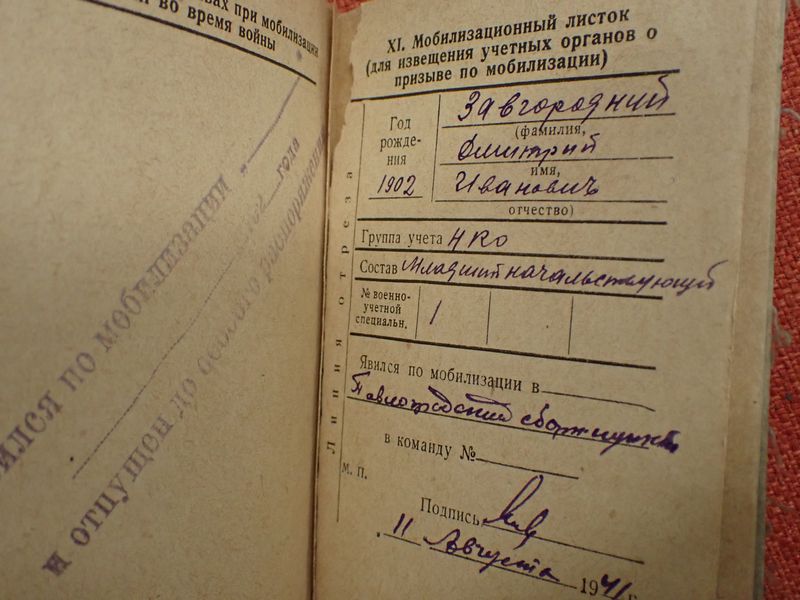 вах при мобилизации
во время войны
ился по мобилизации
года
и отпущен до особого распоряжения
XI. Мобилизационный листок
(для извещения учетных органов о
призыве по мобилизации)
Год
рожде-
ния
1902
Завгородний
(фамилия,
Дмитрий
имя,
Иванович
отчество)
Группа учета НКО
Состав Младший начальствующий
№ военно-
учетной
специальн.
1
Линия отреза
Явился по мобилизации в
Павлоградский сборпункт
в команду №
М. П.
Подпись
11 Августа 1941 г.